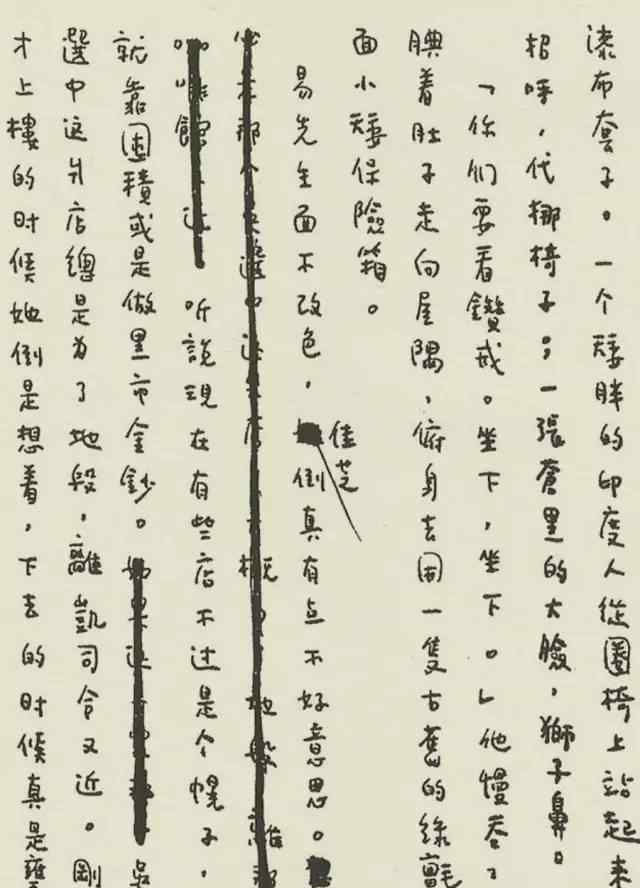 漆布套子。一个矮胖的印度人從圈椅上站起来
招呼，代挪椅子；一張蒼黑的大臉，獅子鼻。
「你们要看鑽戒。坐下，坐下。」他慢吞〻
腆着肚子走向屋隅，俯身去開一隻古舊的綠氈
面小矮保險箱。
易先生面不改色，佳芝倒真有点不好意思。
听說現在有些店不过是个幌子，
就靠囤積或是做黑市金鈔。吳
選中这爿店總是为了地段，離凱司令又近。剛
才上樓的时候她倒是想着，下去的时候真是甕